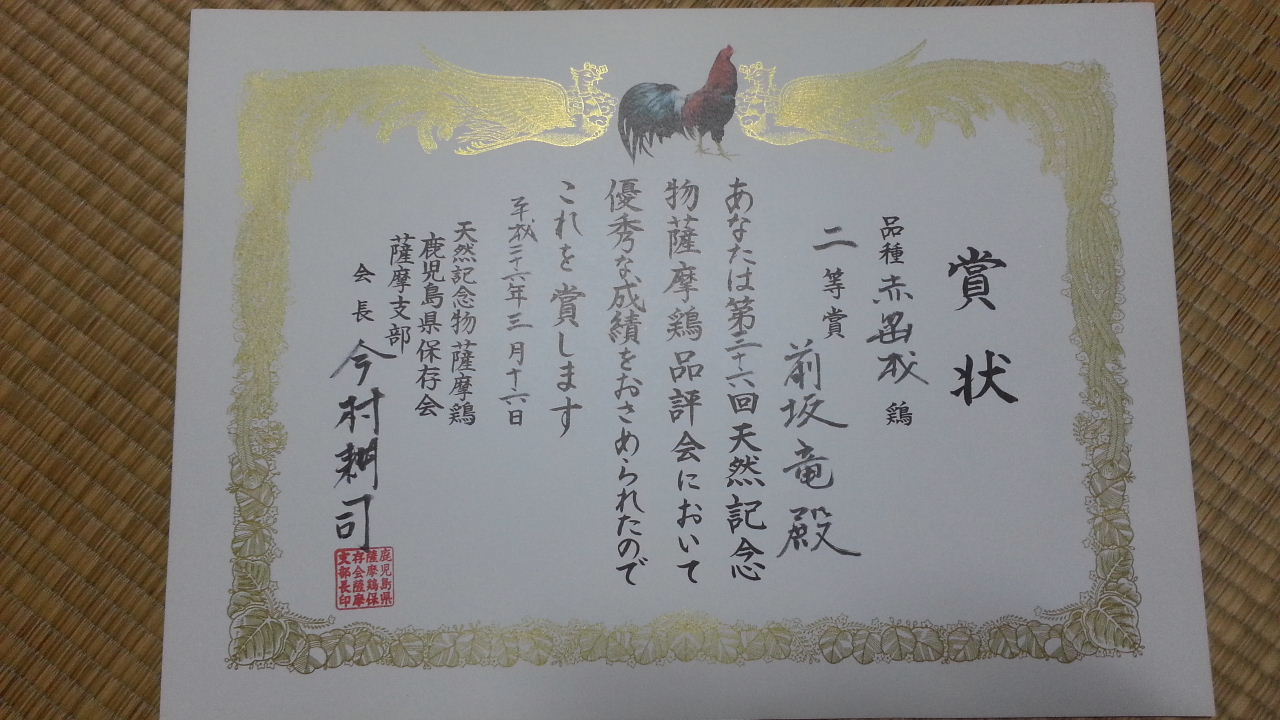 賞状
品種 赤笹 成 鶏
二等賞
前坂竜殿
あなたは第三十六回天然記念
物薩摩鶏品評会において
優秀な成績をおさめられたので
これを賞します
平成二十六年三月十六日
天然記念物薩摩鶏
鹿児島県保存会
薩摩支部
会長 今村 司
鹿児島県
薩摩鶏保
存会薩摩
支部長印